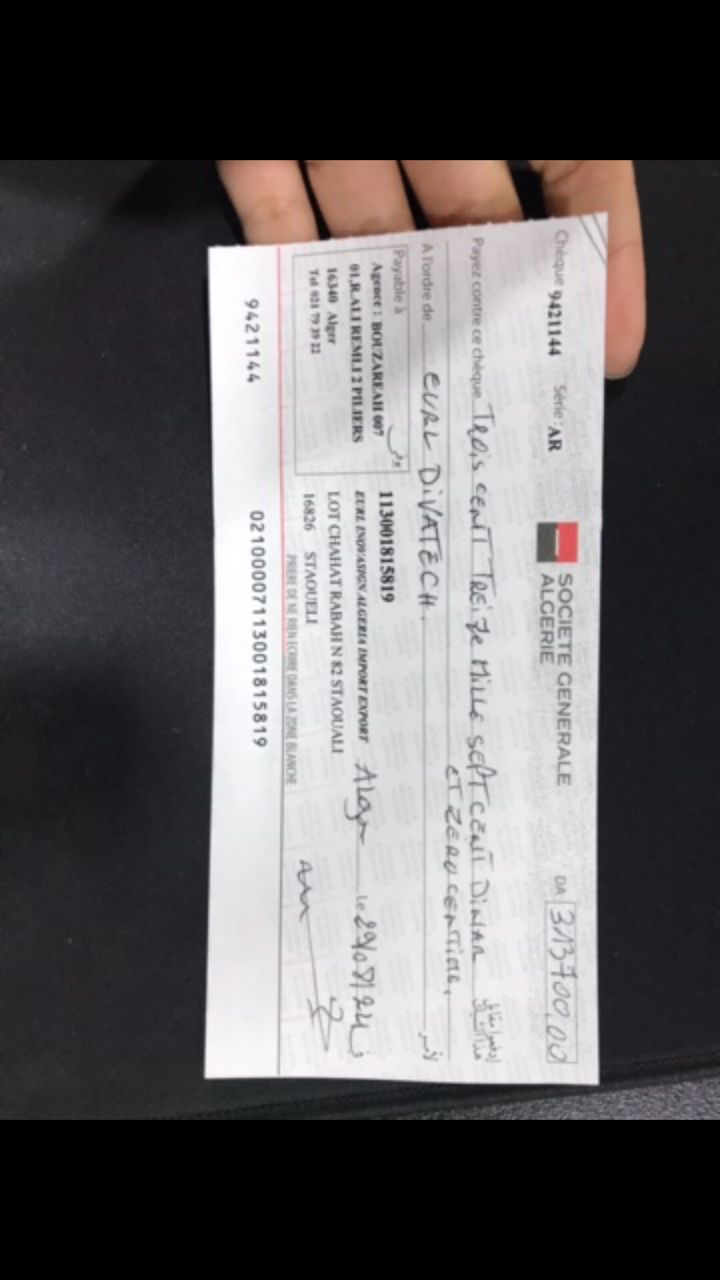 Chèque 9421144 Série AR
SOCIETE GENERALE
ALGERIE
DA 313700,00
Payez contre ce chèque Trois cent Treize Mille sept cent Dinar
et zero centime,
ادفعوا مقابل
هذا الشيك
A l'ordre de EURL DiVATECH. لأمر
Payable à
Agence : BOUZAREAH 007
01,R.ALI REMLI 2 PILIERS
16340 Alger
Tel 021 79 39 22
113001815819
EURL INOVASIGN ALGERIA IMPORT EXPORT
LOT CHAHAT RABAH N 82 STAOUALI
16826 STAOUELI
Alger le 29/07/24 في
PRIERE DE NE RIEN ECRIRE DANS LA ZONE BLANCHE
9421144 02100007113001815819